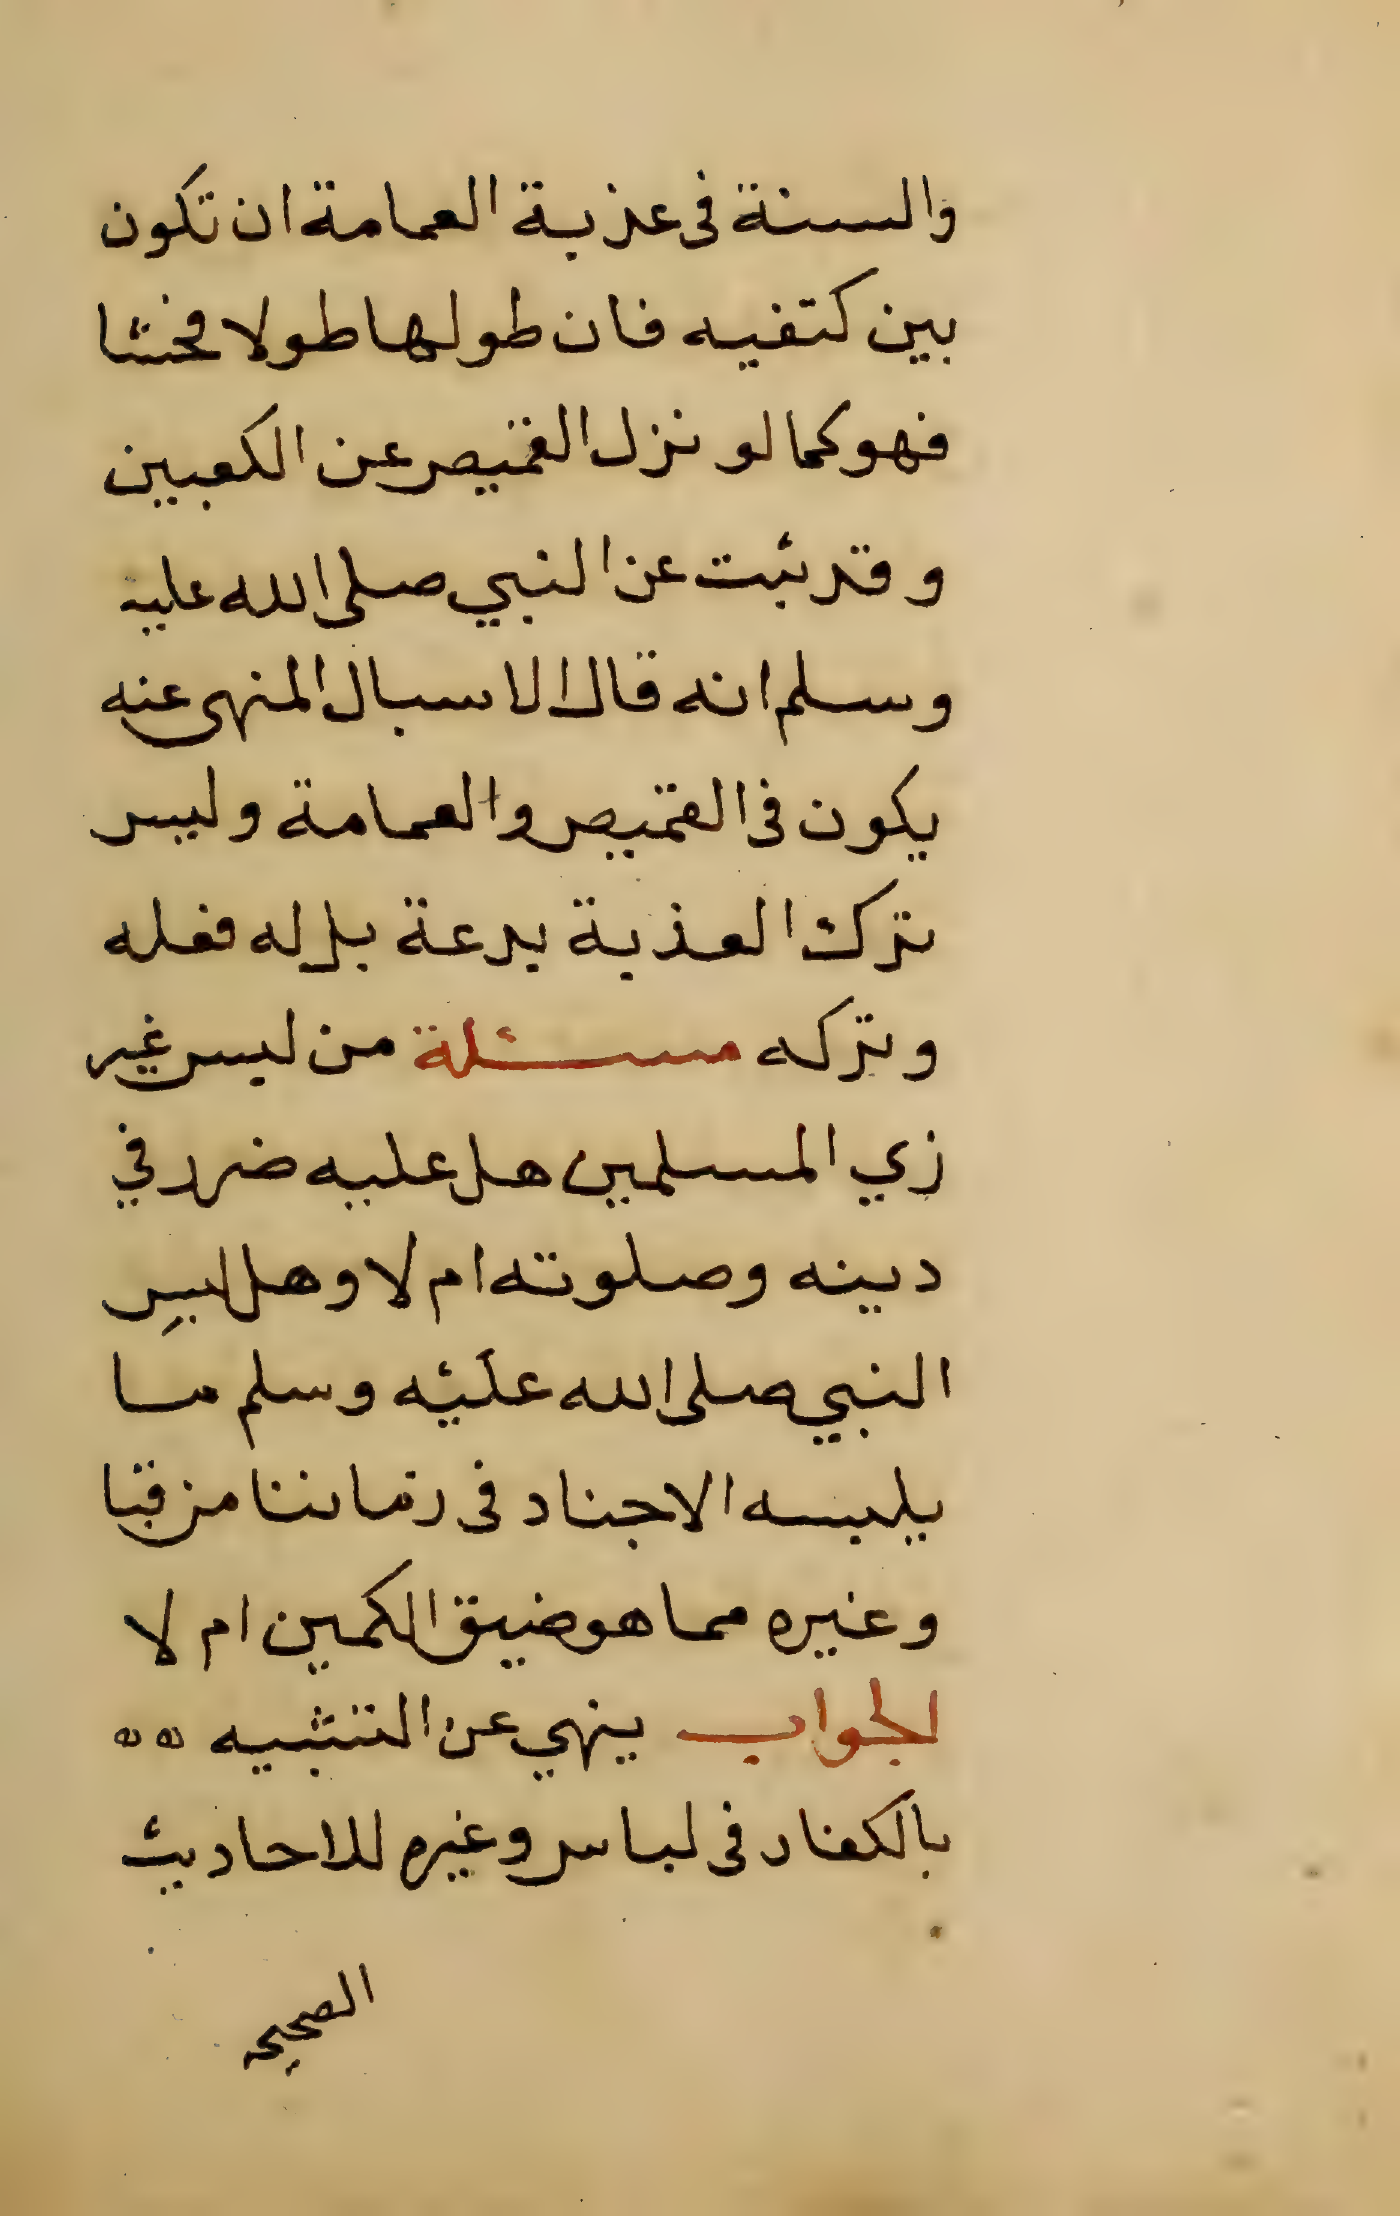 والسنة فى عذبة العمامة ان تكون
بين كتفيه فان طولها طولا فحشا
فهو كما لو نزل القميص عن الكعبين
وقد ثبت عن النبي صلى الله عليه
وسلم انه قال الاسبال المنهى عنه
يكون فى القميص والعمامة وليس
ترك العذبة بدعة بل له فعله
وتركه مسئلة من لبس غير
زي المسلمين هل عليه ضرر في
دينه وصلوته ام لا وهل لبس
النبي صلى الله عليه وسلم ما
يلبسه الاجناد فى زماننا من قبا
وغيره مما هو ضيق الكمين ام لا
الجواب ينهي عن التشبه ه ه
بالكفار فى لباس وغيره للاحاديث
الصحيحه